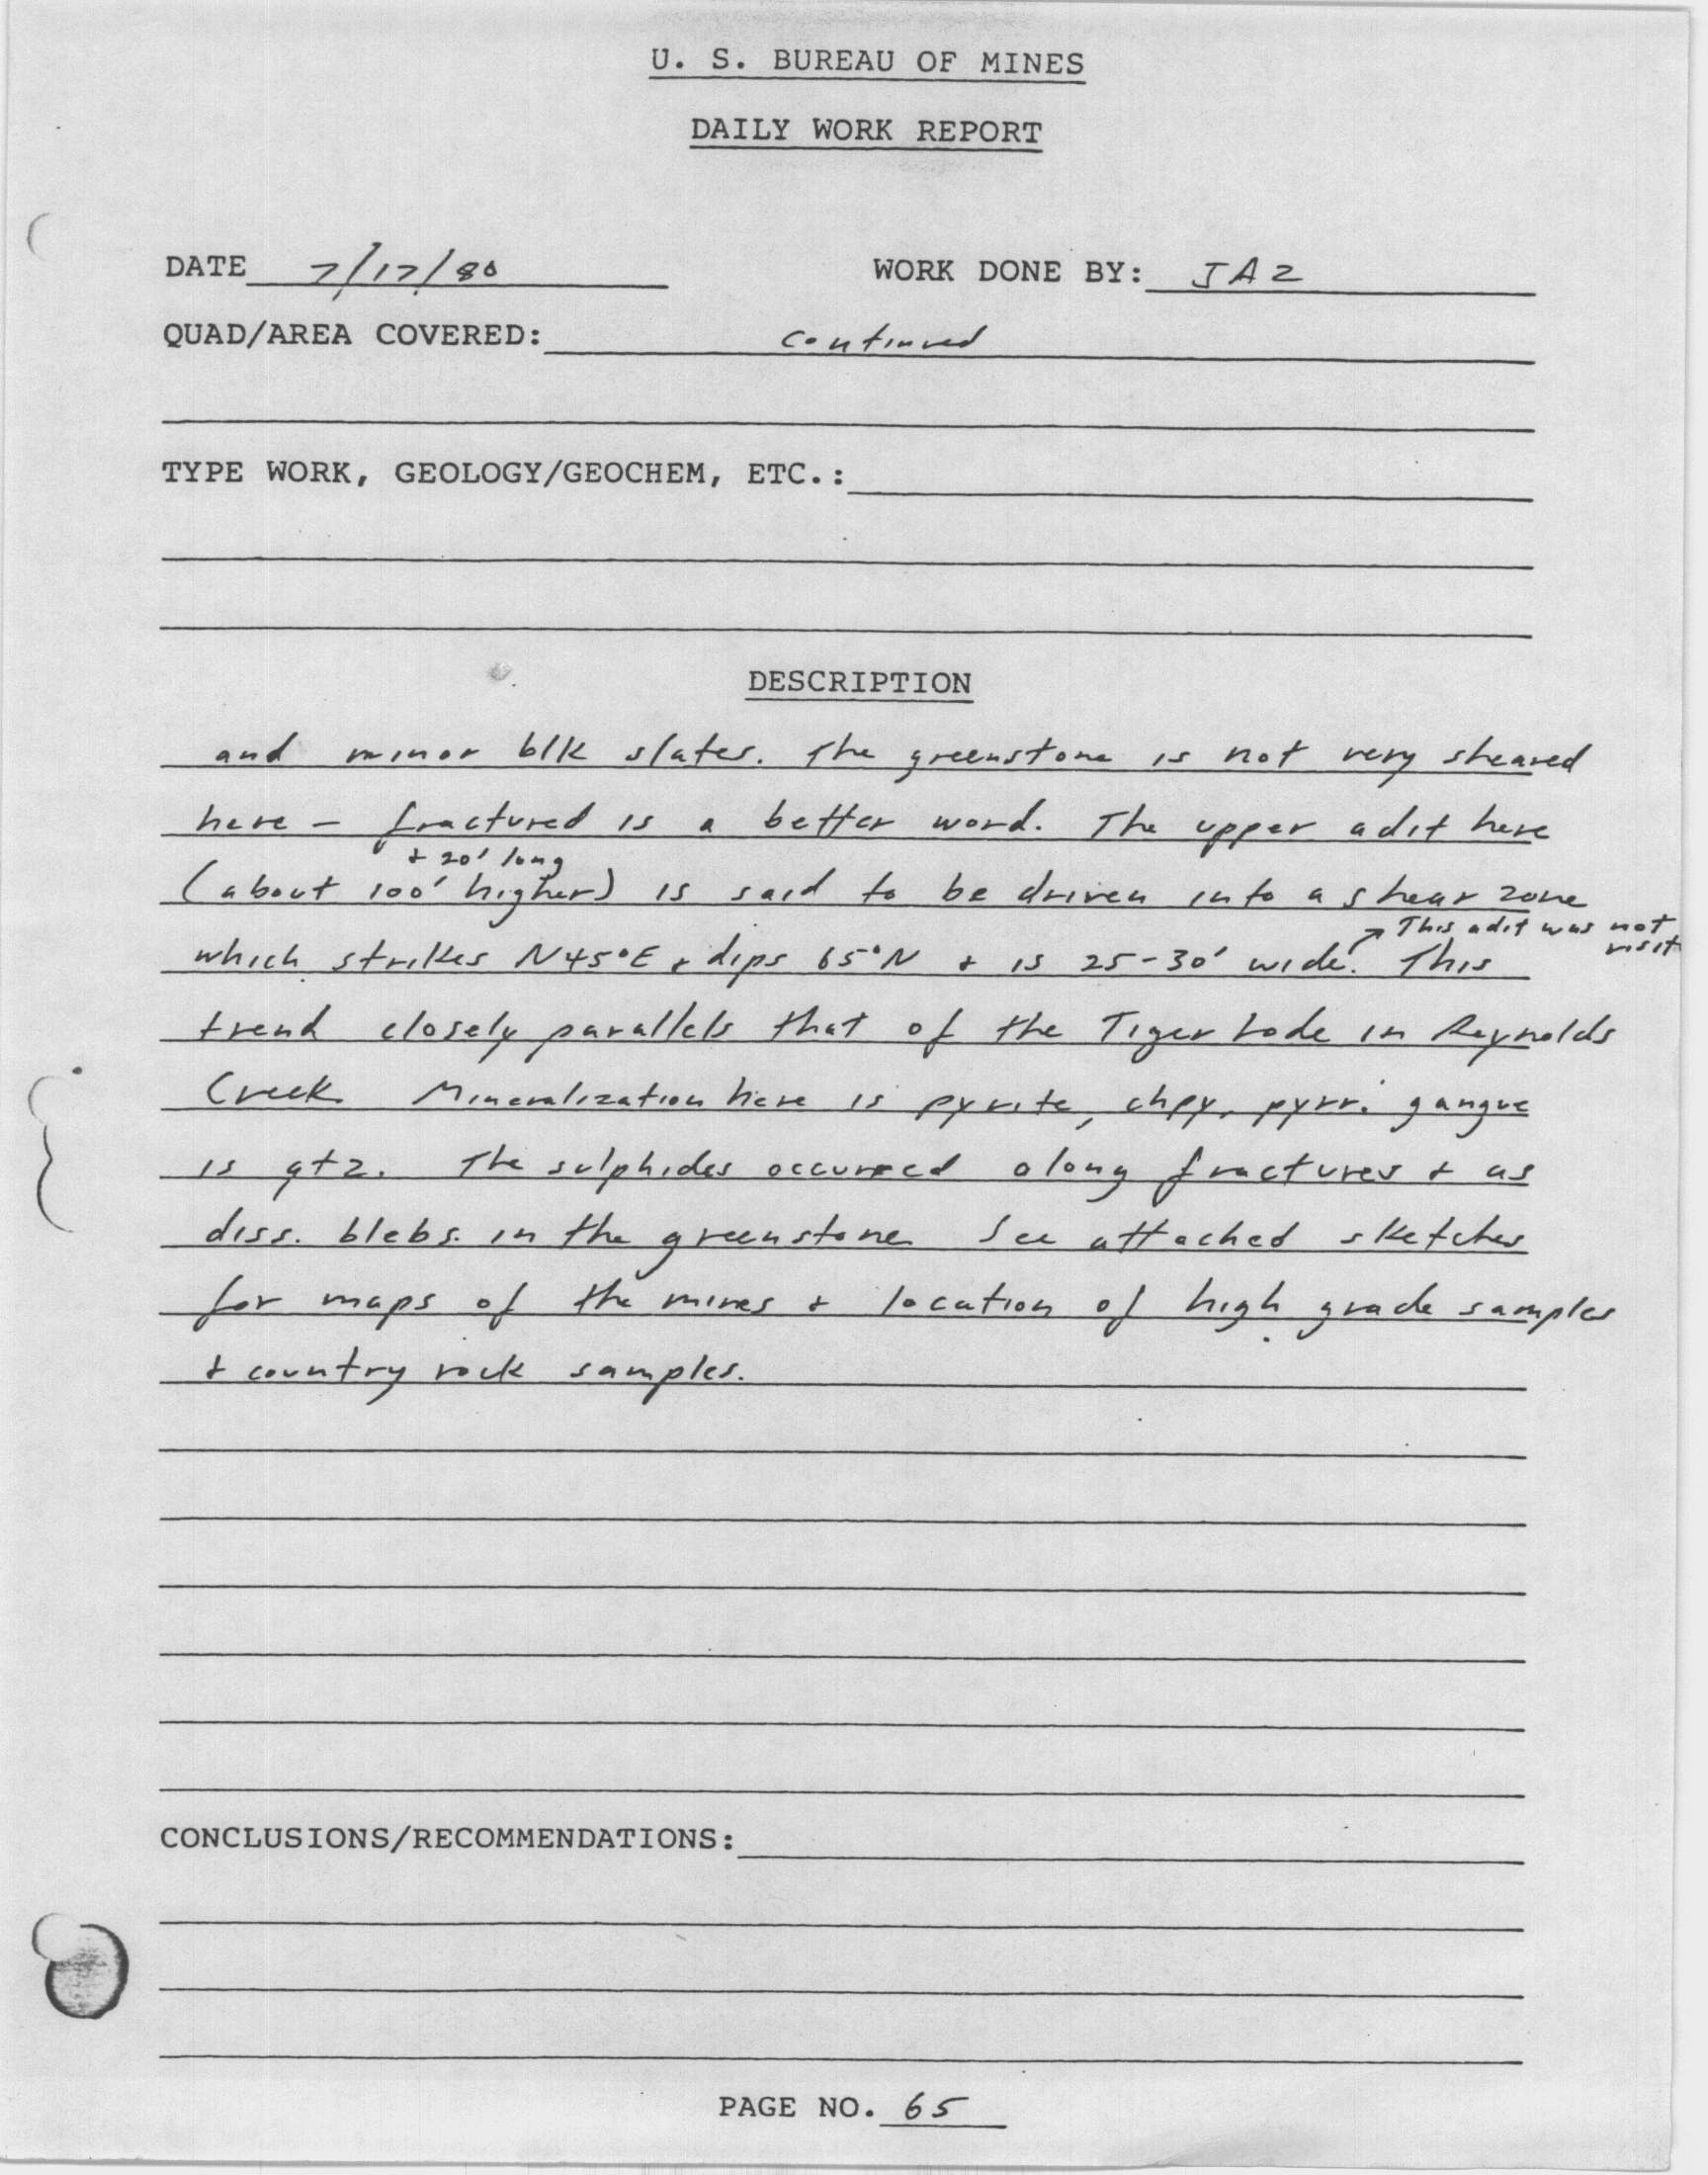 U. S. BUREAU OF MINES
DAILY WORK REPORT
DATE 7/17/80 WORK DONE BY: JAZ
QUAD/AREA COVERED: continued
TYPE WORK, GEOLOGY/GEOCHEM, ETC.:
DESCRIPTION
and minor blk slates. The greenstone is not very sheared
here - fractured is a better word. The upper adit here
+ 20' long
(about 100' higher) is said to be driven into a shear zone
This adit was not
visit
which strikes N45°E + dips 65°N + is 25-30' wide. This
trend closely parallels that of the Tiger Lode in Reynolds
Creek. Mineralization here is pyrite, chpy, pyrr. gangue
is qtz. The sulphides occurred along fractures + as
diss. blebs. in the greenstone. See attached sketches
for maps of the mines + location of high grade samples
+ country rock samples.
CONCLUSIONS/RECOMMENDATIONS:
PAGE NO. 65